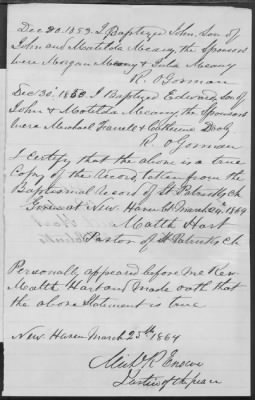 Dec 20. 1853. I Baptized John, son of
John and Matilda Meany, the Sponsors
were Morgan Meany & Julia Meany
R. O Gorman
Dec 30. 1860 I Baptized Edward, Son of
John & Matilda Meany, the Sponsors
Were Michael Farrell & Catherine
R. O Gorman
I certify that the above is a true
Copy of the Record, taken from the
Baptismal Record of St Patricks Ch
Given at New Haven Ct March 24th 1864
Matth Hart
Pastor of St Patricks Ch.
Personally appeared before me Rev.
Matth Hart and made oath that
the above Statement is true
New Haven March 25th 1864
R Enscoe
Justice of the peace